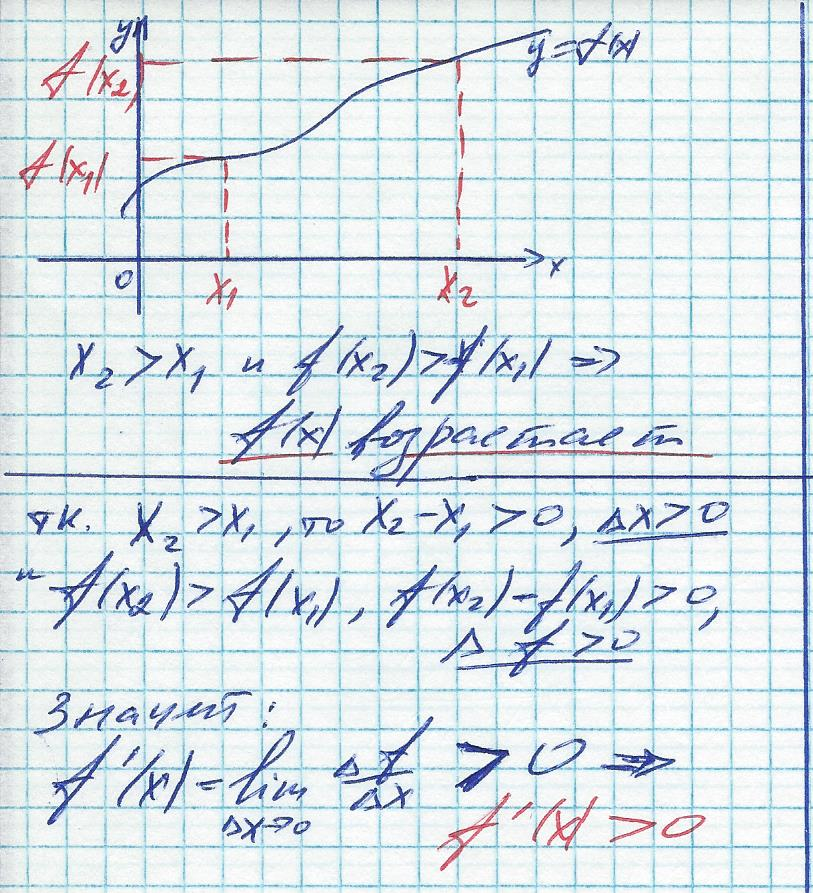 y
y=f(x)
f(x₂)
f(x₁)
0 x₁ x₂ x
x₂ > x₁ и f(x₂) > f(x₁) ⇒
f(x) возрастает
т.к. x₂ > x₁, то x₂ - x₁ > 0, Δx > 0
и f(x₂) > f(x₁), f(x₂) - f(x₁) > 0,
Δf > 0
Значит:
f'(x) = lim Δf/Δx > 0 ⇒
Δx→0
f'(x) > 0